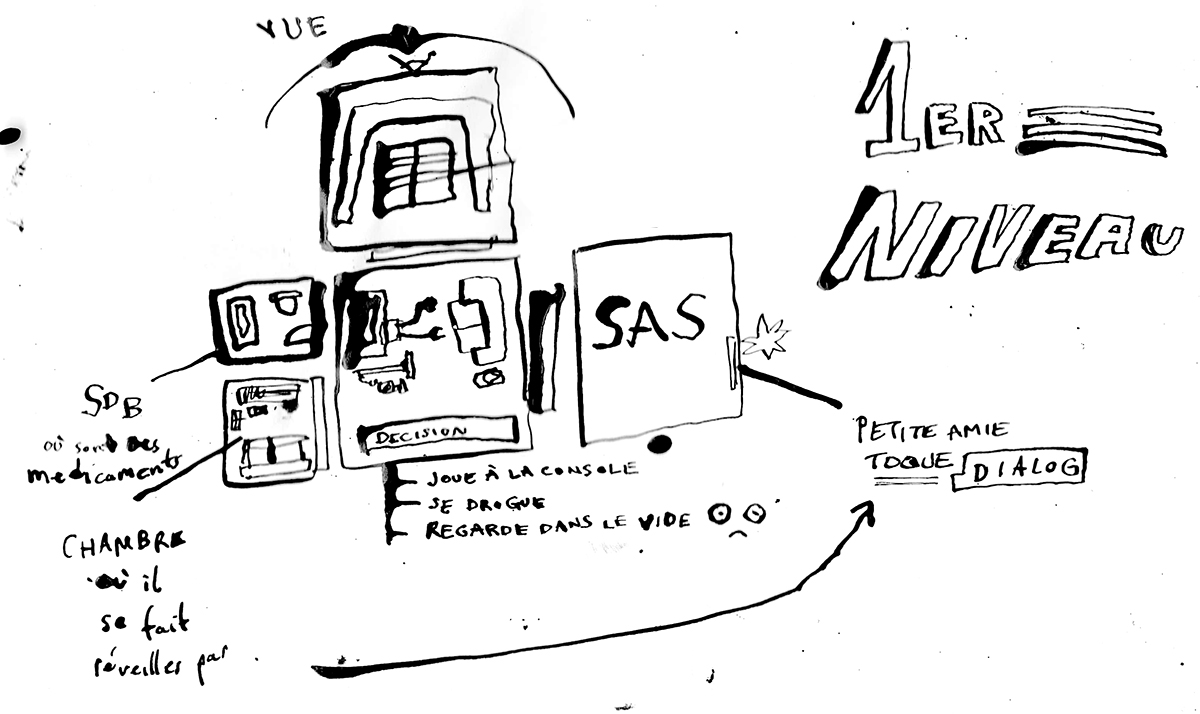 VUE
1ER
NIVEAU
SAS
SDB
où sont des
medicaments
DECISION
JOUE À LA CONSOLE
SE DROGUE
REGARDE DANS LE VIDE
PETITE AMIE
TOQUE DIALOG
CHAMBRE
où il
se fait
réveilles par